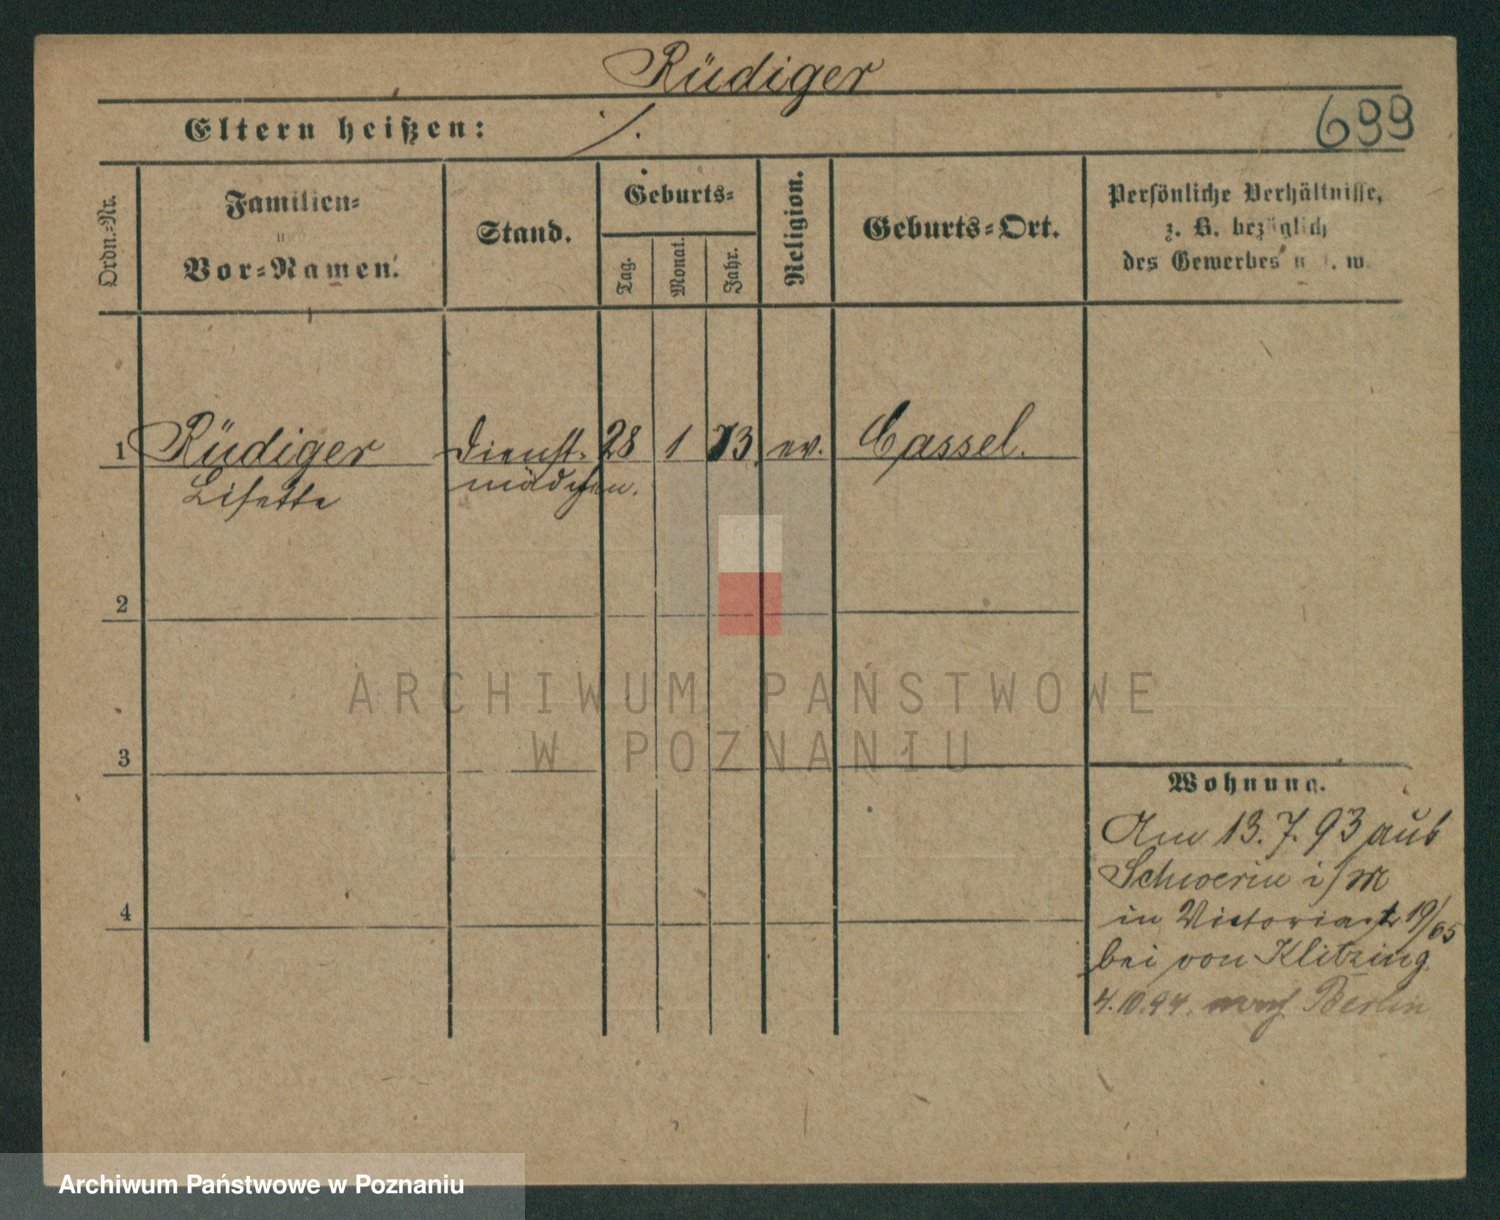 Rüdiger
Eltern heißen: ./.
699
Ordn.-Nr.
Familien-
und
Vor-Namen.
Stand.
Geburts-
Tag.
Monat.
Jahr.
Religion.
Geburts-Ort.
Persönliche Verhältnisse,
z. B. bezüglich
des Gewerbes u. s. w.
1 Rüdiger Dienst- 28 1 73 ev. Cassel.
Lisette mädchen.
2
3
4
Wohnung.
Am 13.7.93 aus
Schwerin i/M
in Victoriastr 19/65
bei von Klitzing
4.10.94. nach Berlin
ARCHIWUM PAŃSTWOWE
W POZNANIU
Archiwum Państwowe w Poznaniu